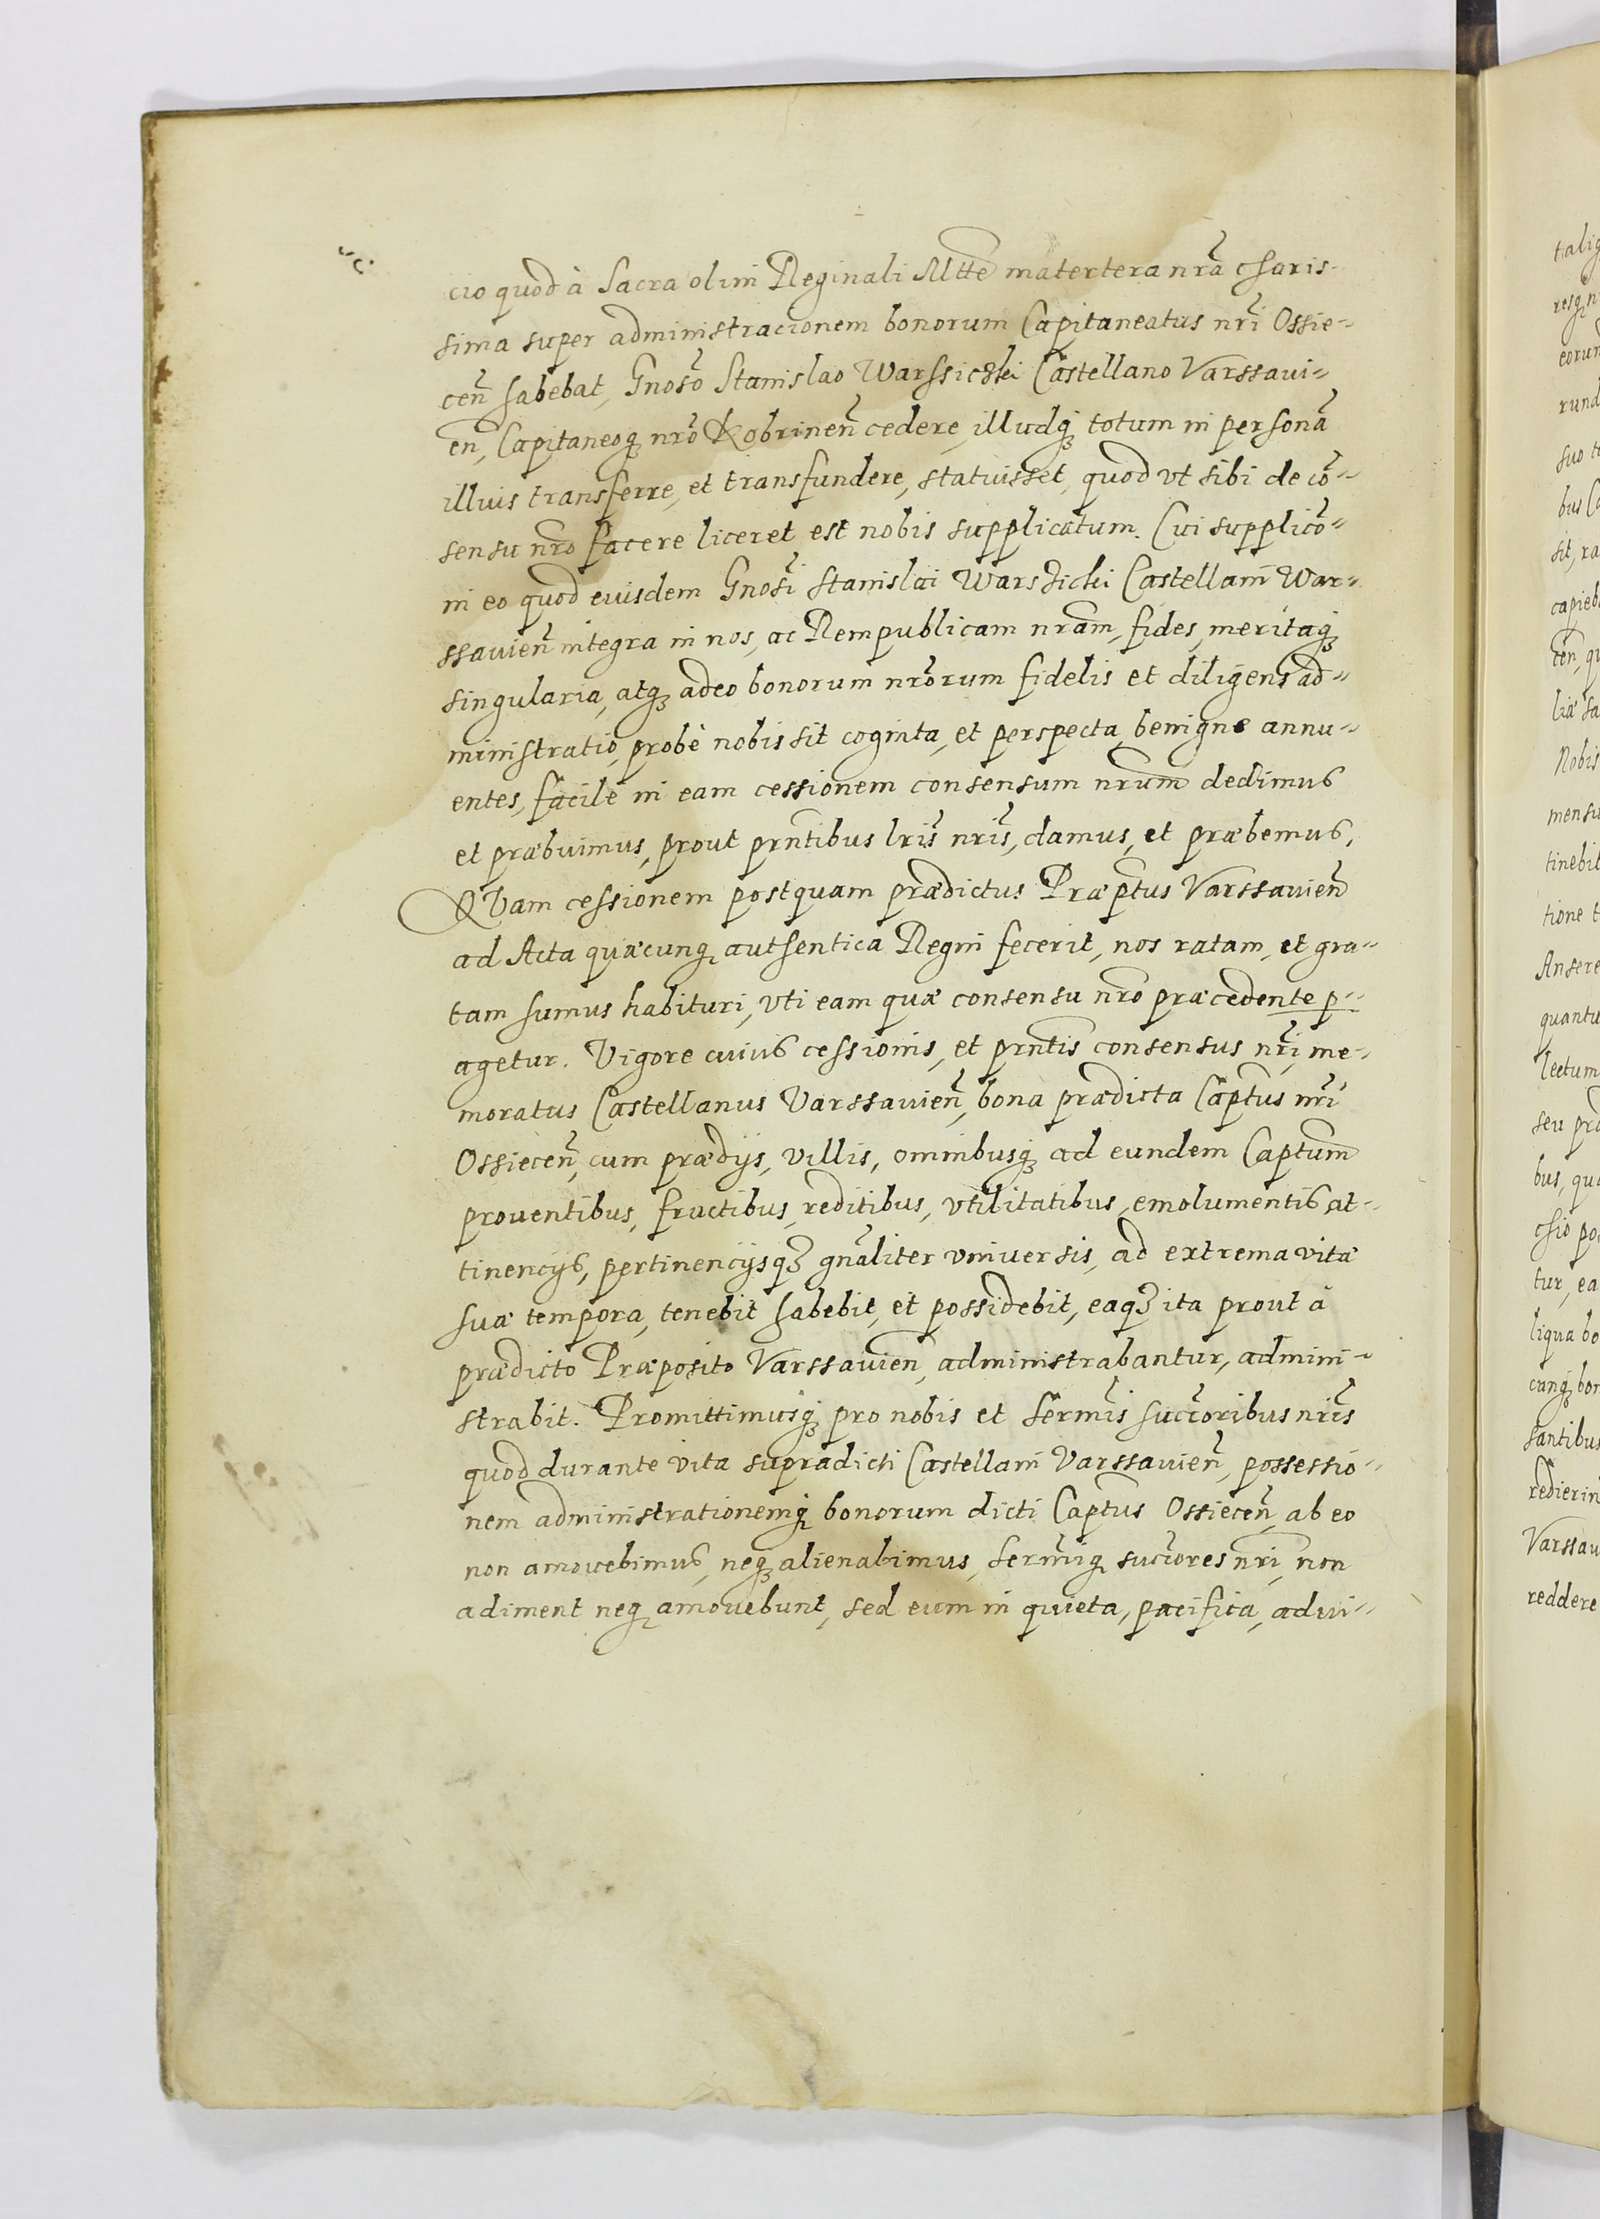 cio quod à Sacra olim Reginali Mtte matertera nrã charis-
sima super administracionem bonorum Capitaneatus nrĩ Ossie-
ceñ habebat, Gnoso Stanislao Warssiczki Castellano Varssaui-
eñ, Capitaneoq nrõ Kobrineñ cedere, illudq totum in personã
illius transferre, et transfundere, statuisset, quod vt sibi de cõ-
sensu nrõ facere liceret est nobis supplicatum. Cui supplicõ-
ni eo quod eiusdem Gnosi Stanislai Warszicki Castellani War-
ssauieñ integra in nos, ac Rempublicam nram, fides, meritaq
singularia, atq adeo bonorum nrõrum fidelis et diligens ad-
ministratio, probè nobis sit cognita, et perspecta, benigne annu-
entes, facile in eam cessionem consensum nrum dedimus
et præbuimus, prout prñtibus lrĩs nrĩs, damus, et præbemus.
QVam cessionem postquam prædictus Præptus Varssauieñ
ad Acta quæcunq authentica Regni fecerit, nos ratam, et gra-
tam sumus habituri, vti eam quæ consensu nrõ præcedente p-
agetur. Vigore cuius cessionis, et prñtis consensus nrĩ, me-
moratus Castellanus Varssauieñ, bona prædicta Captus nrĩ
Ossieceñ, cum prædijs, villis, omnibusq ad eundem Captum
prouentibus, fructibus, reditibus, vtilitatibus, emolumentis, at-
tinencijs, pertinencijsq gñaliter vniuersis, ad extrema vitæ
suæ tempora, tenebit habebit, et possidebit, eaq ita prout à
prædicto Præposito Varssauien, administrabantur, admini-
strabit. Promittimusq pro nobis et Sermis succoribus nrĩs
quod durante vita supradicti Castellani Varssauieñ, possessio-
nem administrationemq bonorum dicti Captus Ossieceñ, ab eo
non amouebimus, neq alienabimus, Sermiq succores nrĩ, non
adiment neq amouebunt, sed eum in quieta, pacifica, adui-
talig
resq n
eorun
rund
suo t
bus Ca
sit, ra
capieb
ceñ, qu
liæ sa
Nobis
mensu
tinebit
tione t
Ansere
quantu
lectum
seu pra
bus, qua
chio po
tur, ea
liqua bo
cunq bon
santibus
redierin
Varssau
reddere